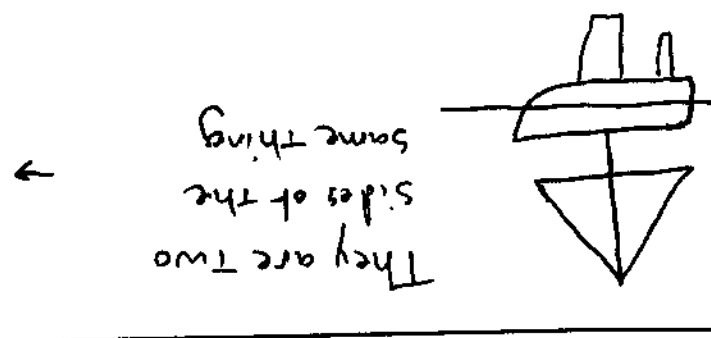 They are Two
sides of the
same Thing